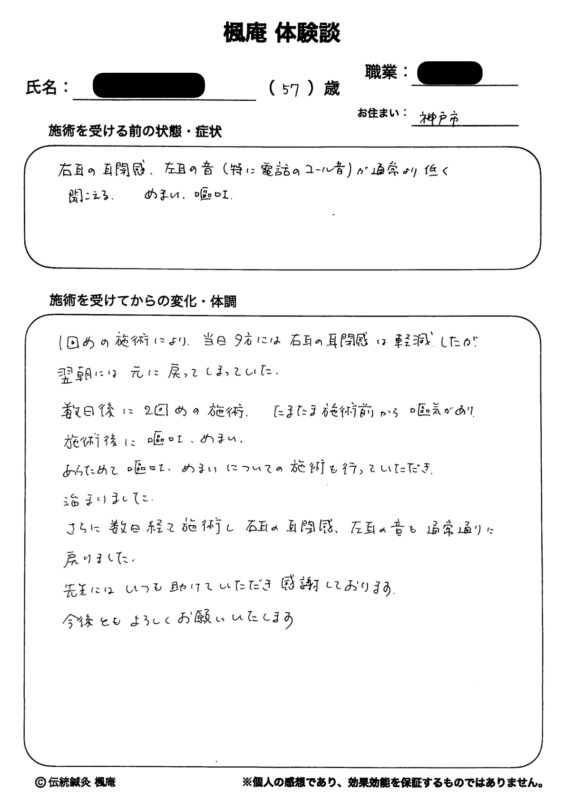 楓庵 体験談
職業：
氏名：
（ 57 ）歳
お住まい： 神戸市
施術を受ける前の状態・症状
右耳の耳閉感、左耳の音（特に電話のコール音）が通常より低く
聞こえる。 めまい、嘔吐.
施術を受けてからの変化・体調
1回めの施術により、当日夕方には右耳の耳閉感は軽減したが
翌朝には元に戻ってしまっていた.
数日後に2回めの施術. たまたま施術前から嘔気があり
施術後に嘔吐、めまい、
あらためて嘔吐、めまいについての施術も行っていただき
治まりました.
さらに数日経て施術し右耳の耳閉感、左耳の音も通常通りに
戻りました.
先生にはいつも助けていただき感謝しております.
今後ともよろしくお願いいたします
© 伝統鍼灸 楓庵
※個人の感想であり、効果効能を保証するものではありません。